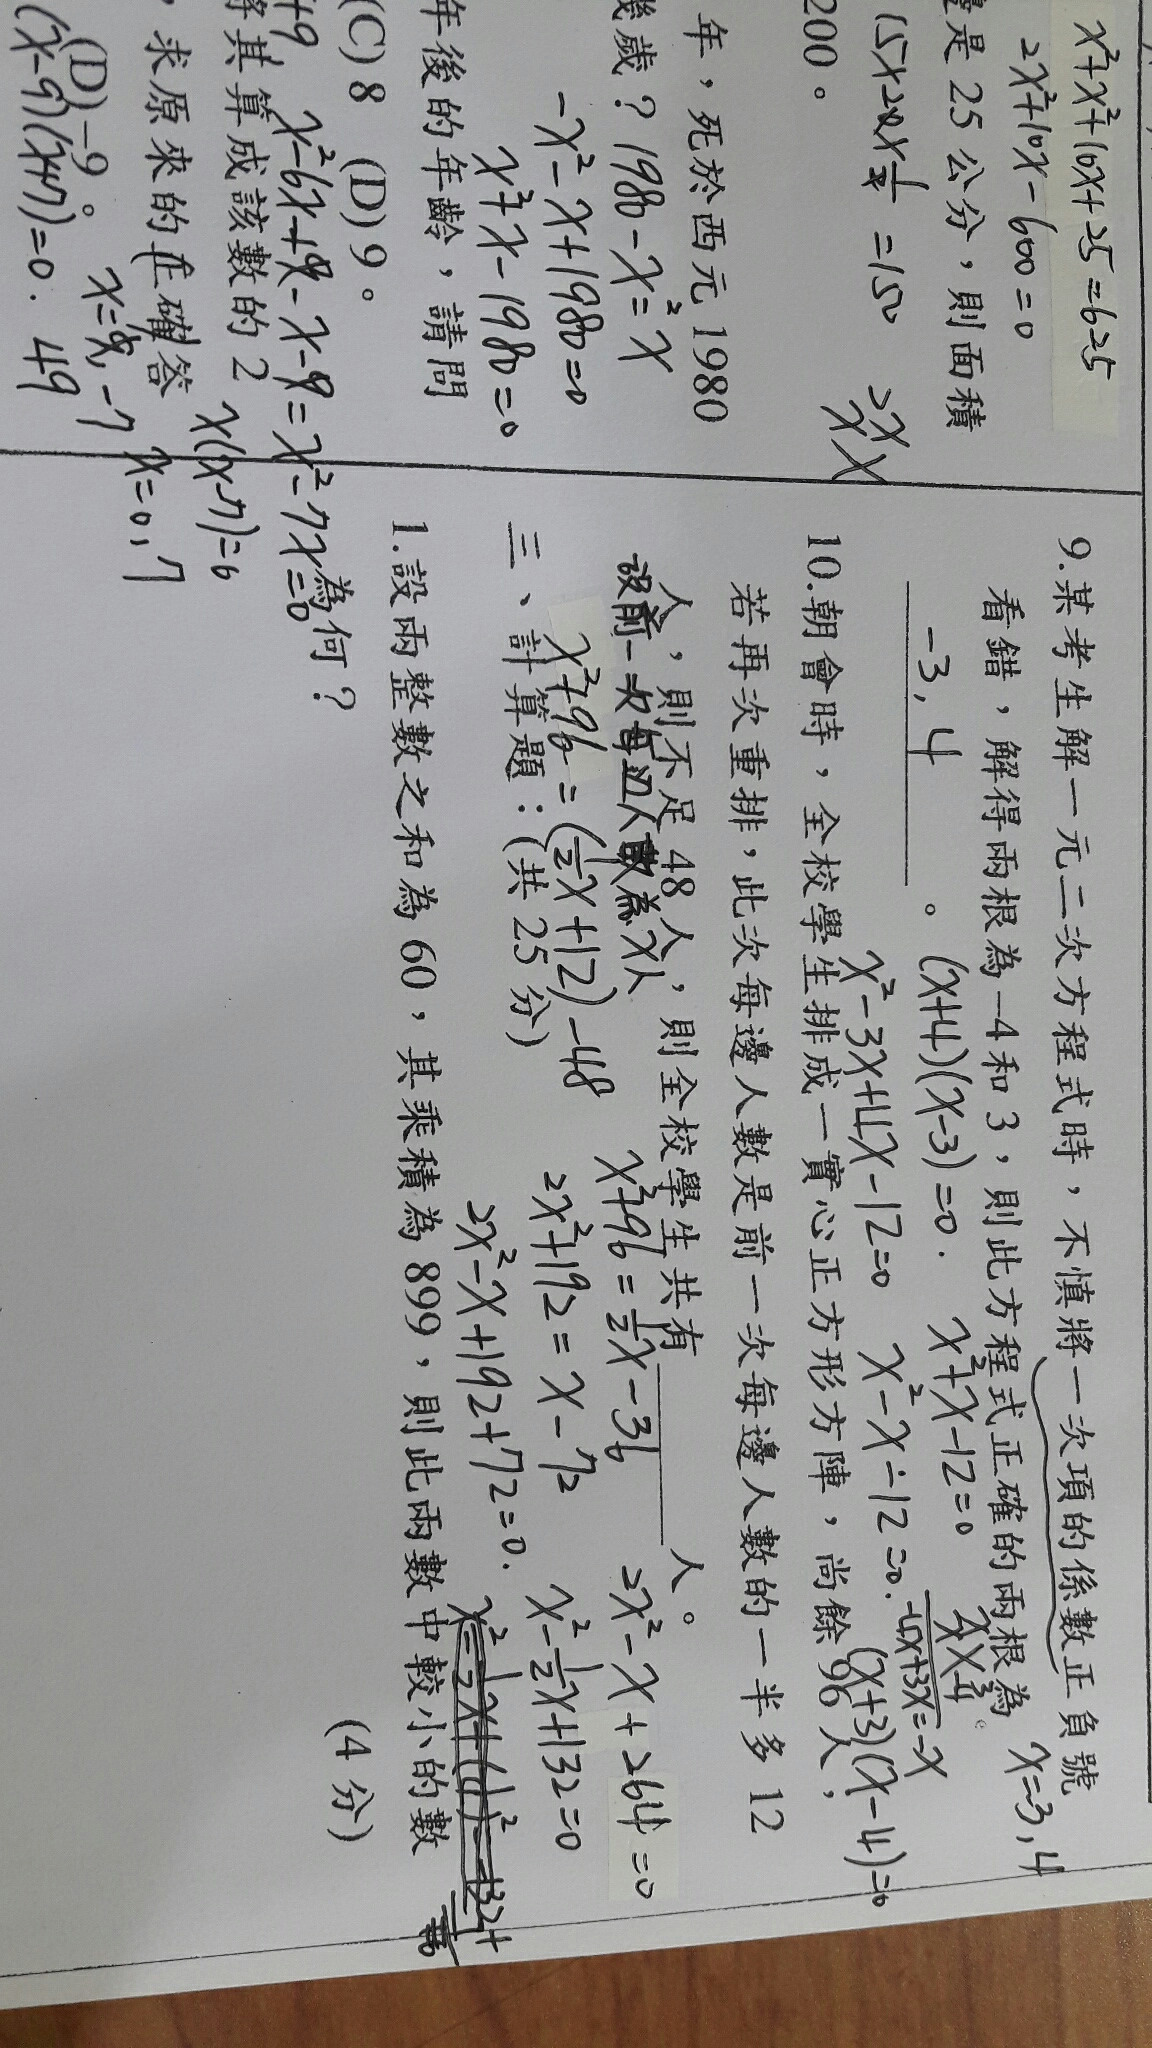 x²+x²+10x+25=625
2x²+10x-600=0
是 25 公分，則面積
15×20×½=150
200。
年，死於西元 1980
幾歲？1980-x²=x
-x²-x+1980=0
x²+x-1980=0
年後的年齡，請問
(C) 8 (D) 9。
+9 x²-6x+9-x-9=x²-7x=0
將其算成該數的 2
x(x-7)=0
，求原來的正確答
x=0,7
(D) -9。 x=9,-7
(x-9)(x+7)=0. 49
9.某考生解一元二次方程式時，不慎將一次項的係數正負號
看錯，解得兩根為-4和3，則此方程式正確的兩根為
x=-3,4
-3,4 。
(x+4)(x-3)=0.
x²+x-12=0
x²-3x+4x-12=0
x²-x-12=0.
-4x+3x=-x
(x+3)(x-4)=0
10.朝會時，全校學生排成一實心正方形方陣，尚餘96人，
若再次重排，此次每邊人數是前一次每邊人數的一半多 12
人，則不足 48 人，則全校學生共有 人。
設前一次每邊人數為x人
x²+96=(½x+12)-48
x²+96=½x-36
2x²+192=x-72
2x²-x+192+72=0.
2x²-x+264=0
x²-½x+132=0
三、計算題：(共 25 分)
1.設兩整數之和為 60，其乘積為 899，則此兩數中較小的數
為何？ (4 分)